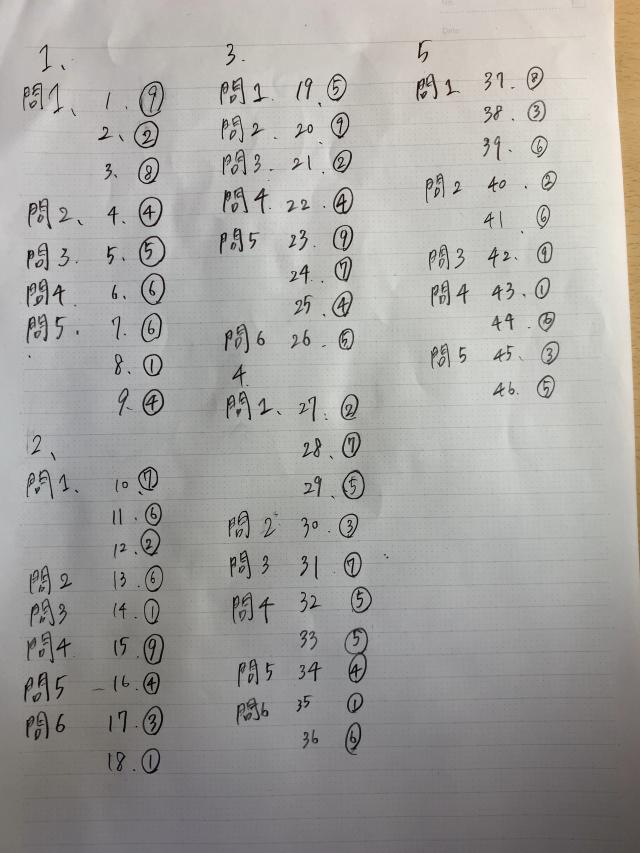 No.
Date
1、
問1、 1. ⑨
2、 ②
3、 ⑧
問2、 4. ④
問3. 5. ⑤
問4 6. ⑥
問5. 7. ⑥
8. ①
9. ④
2、
問1、 10 ⑦
11 ⑥
12 ②
問2 13 ⑥
問3 14. ①
問4 15. ⑨
問5 16. ④
問6 17. ③
18. ①
3.
問1. 19. ⑤
問2. 20. ⑨
問3. 21. ②
問4. 22. ④
問5 23. ⑨
24. ⑦
25. ④
問6 26. ⑤
4
問1、 27. ②
28. ⑦
29. ⑤
問2 30. ③
問3 31. ⑦
問4 32 ⑤
33 ⑤
問5 34 ④
問6 35 ①
36 ⑥
5
問1 37. ⑧
38. ③
39. ⑥
問2 40. ②
41. ⑥
問3 42. ⑨
問4 43. ①
44.
問5 45. ③
46. ⑤